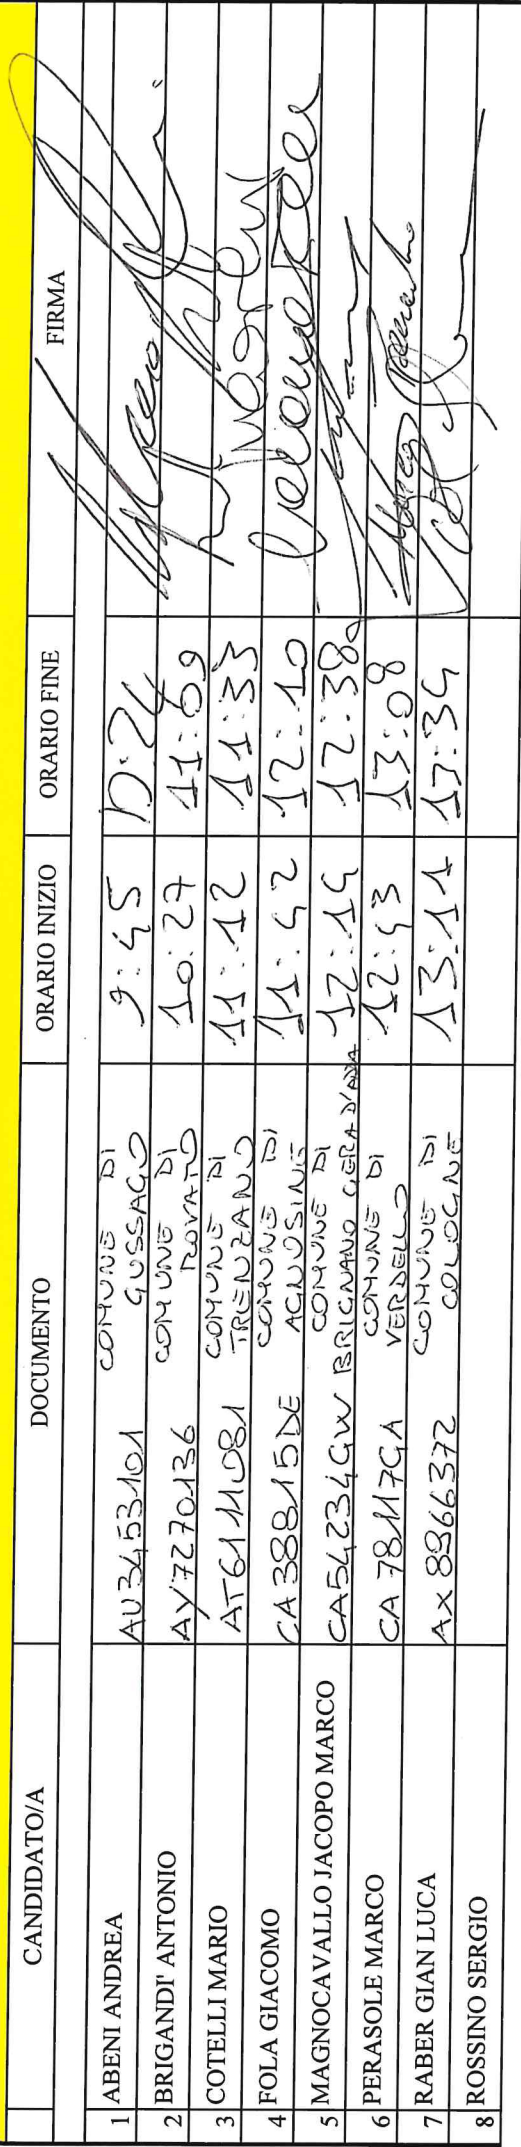 CANDIDATO/A DOCUMENTO ORARIO INIZIO ORARIO FINE FIRMA
1 ABENI ANDREA AU3453101 COMUNE DI GUSSAGO 9:45 10:24
2 BRIGANDI' ANTONIO AY7270136 COMUNE DI ROVATO 10:27 11:09
3 COTELLI MARIO AT6111081 COMUNE DI TRENZANO 11:12 11:33
4 FOLA GIACOMO CA38815DE COMUNE DI AGNOSINE 11:42 12:10
5 MAGNOCAVALLO JACOPO MARCO CA54234GW COMUNE DI BRIGNANO GERA D'ADDA 12:14 12:38
6 PERASOLE MARCO CA78117GA COMUNE DI VERDELLO 12:43 13:08
7 RABER GIAN LUCA AX8966372 COMUNE DI COLOGNE 13:11 13:34
8 ROSSINO SERGIO